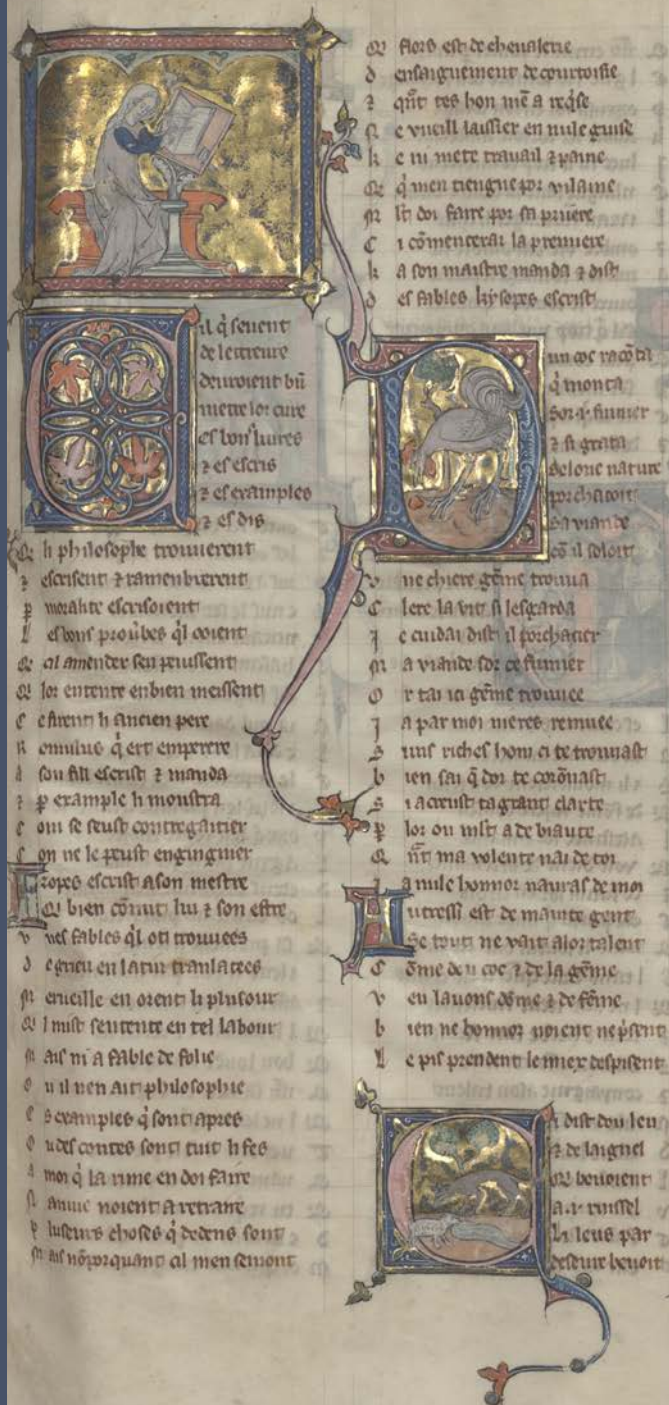 il q̃ seuent
de lettreure
deuroient bñ
mettre lor cure
es bons liures
⁊ es escris
⁊ es examples
⁊ es dis
Q li philosophe trouuerent
⁊ escrisent ⁊ ramenbrerent
P moralite escrisoient
L es bons prouʼbes q̃l ooient
Q cil amender sen peussent
Q lor entente en bien meissent
C e firent li ancien pere
R omulus q̃ ert emperere
A son fill escrist ⁊ manda
⁊ p example li moustra
C om se seust contregaitier
C on ne le peust enginguier
ropes escrist a son mestre
Q bien cõnut lui ⁊ son estre
V nes fables q̃l ot trouuees
D e grieu en latin tranlatees
M erueille en orent li plusour
Q l mist sentente en tel labour
M ais ni a fable de folie
O u il nen ait philosophie
E s examples q̃ sont apres
O u des contes sont tuit li fes
A moi q̃ la rime en doi faire
N auuie noient a retraire
P luseurs choses q̃ dedens sont
M ais nõporquant cil men semont
Q flors est de cheualerie
D ensaignement de courtoisie
⁊ qñt tes hon mẽ a req̃se
N e vueill laissier en nule guise
K e ni mete trauail ⁊ paine
Q q̃ men tiengne por vilaine
M lt doi faire por sa priiere
C i cõmencerai la premiere
K a son maistre manda ⁊ dist
D es fables kysopes escrist
un coc racõta
q̃ monta
Sor .i. fumier
⁊ si grata
Selonc nature
porchacoit
Sa viande
cõ il soloit
V ne chiere gẽme trouua
C lere la vit si lesgarda
J e cuidai dist il porchacier
M a viande sor ce fumier
O r tai ici gẽme trouuee
J a par moi nieres remuee
S uns riches hom ci te trouuast
B ien sai q̃ dor te corõnast
S i acreust ta grant clarte
P lor ou mlt a de biaute
Q ñt ma volente nai de toi
J a nule honnor nauras de moi
Autressi est de mainte gent
Se tout ne vait a lor talent
C õme dou coc ⁊ de la gẽme
V eu lauons dõme ⁊ de fẽme
B ien ne honnor noient ne pʼsent
L e pis prendent le miex despisent
i dist dou leu
⁊ de laignel
Q beuoient
a .i. ruissel
Li leus par
deseure beuoit